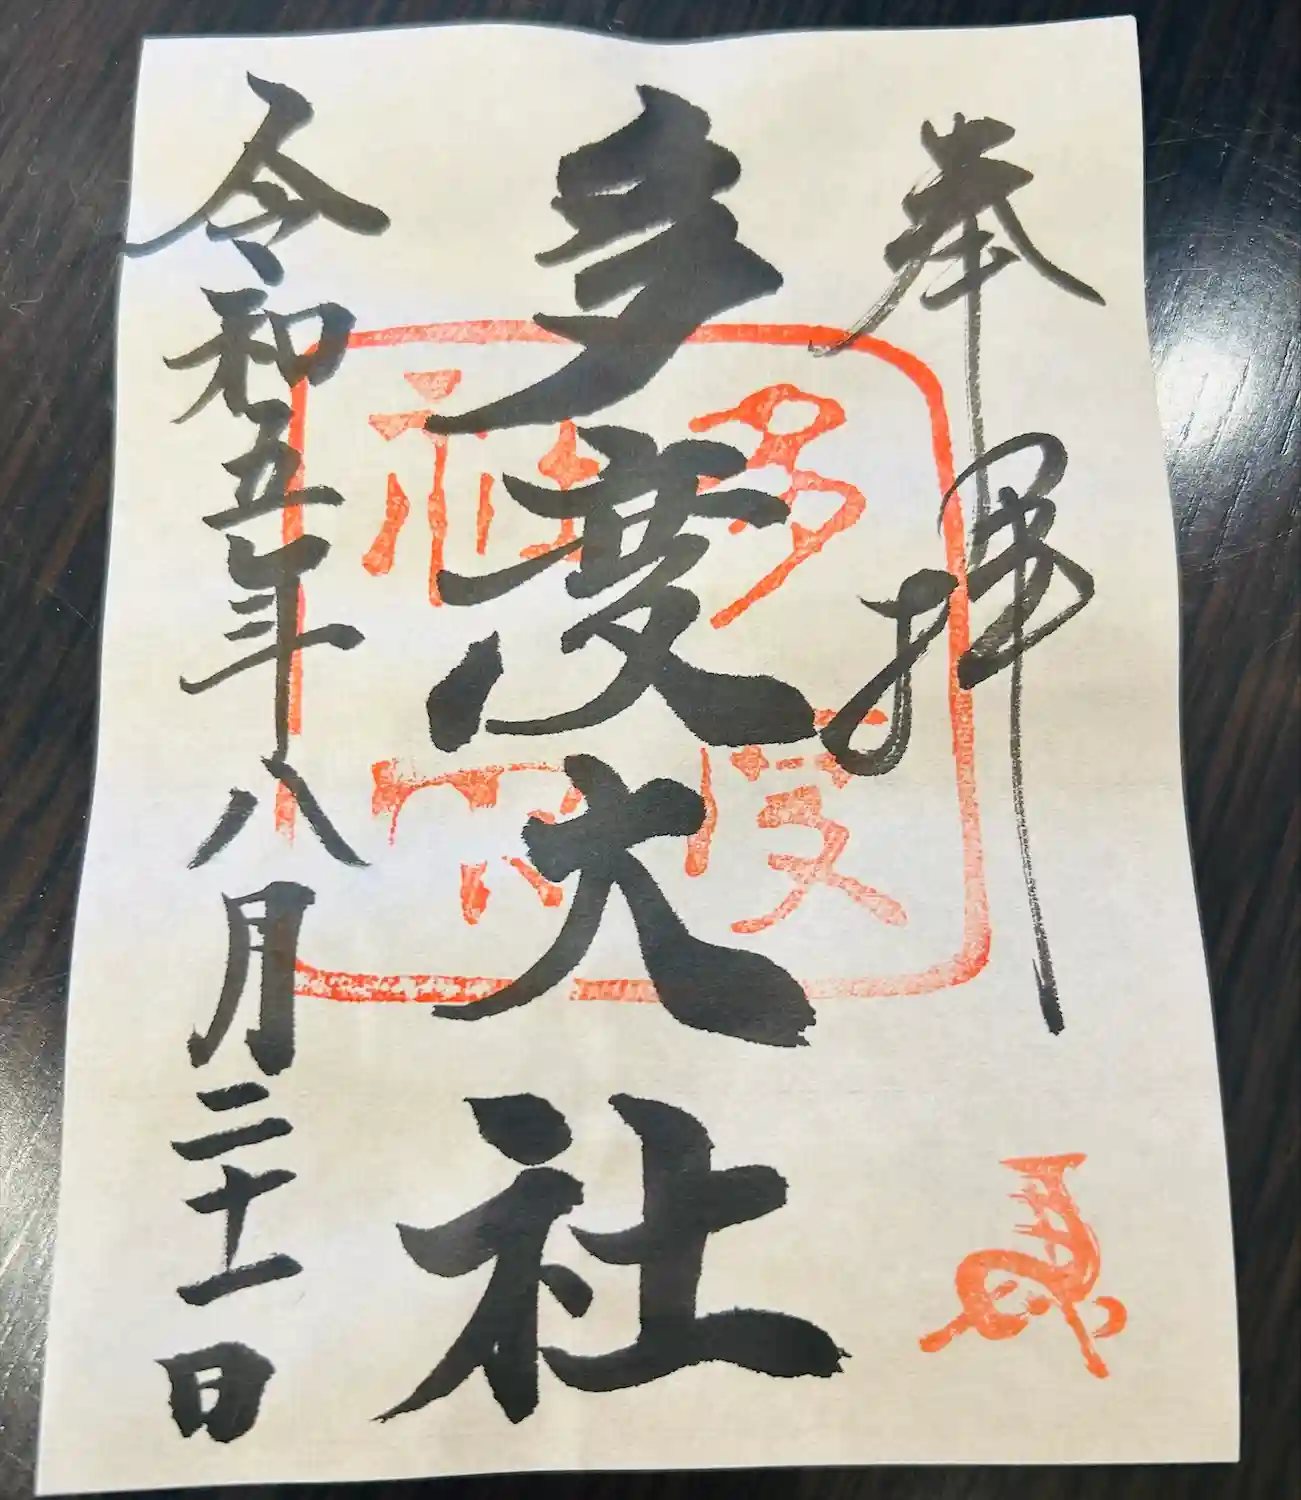 奉拝
多度大社
令和五年八月二十一日
多度
社印